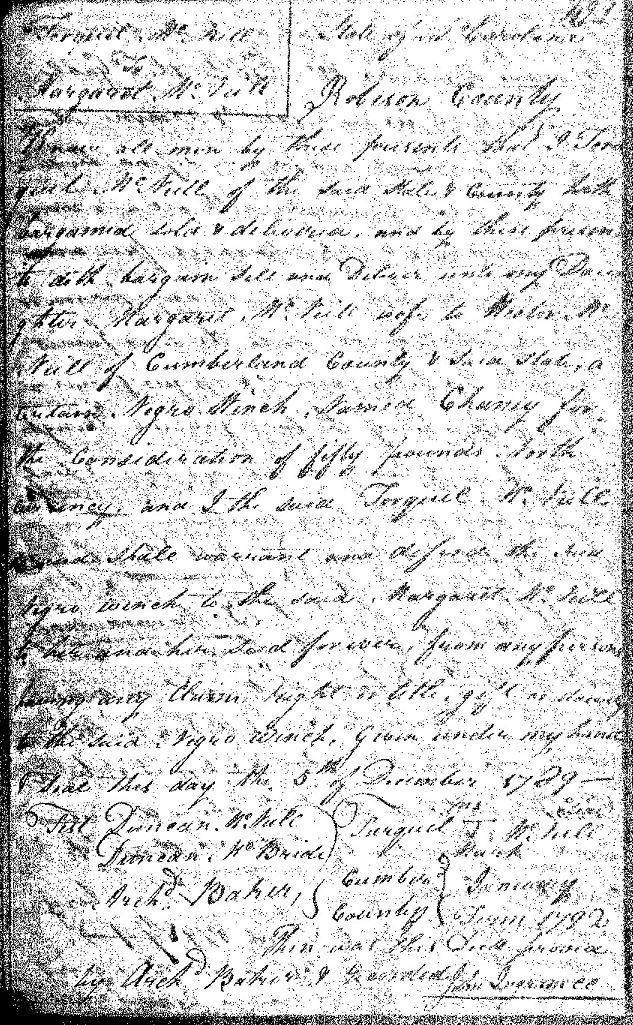 Torquil McNeill State of N Carolina
To
Margaret McNeill Robeson County
Know all men by these presents that I Tor
quil McNeill of the said State & County hath
bargained sold & delivered, and by these presents
to doth bargain sell and Deliver unto my Dau
ghter Margaret McNeill wife to Hector Mc
Neill of Cumberland County & said State, a
certain Negro Winch Named Chaney for
the Consideration of fifty pounds North
currency, and I the said Torquil McNeill
shall warrant and defend the said
Negro winch to the said Margaret McNeill
to her and her forever, from any persons
having any Claim right or title, gift or
to the said Negro Winch, Given under my hand
& Seal this day the 5th of December 1789 —
Test Duncan McNeill Turquil his T McNeill Seal
Duncan McBride mark
Archd Baker, Cumber January
County Term 1792
Then was this Deed proved
by Archd Baker & Recorded